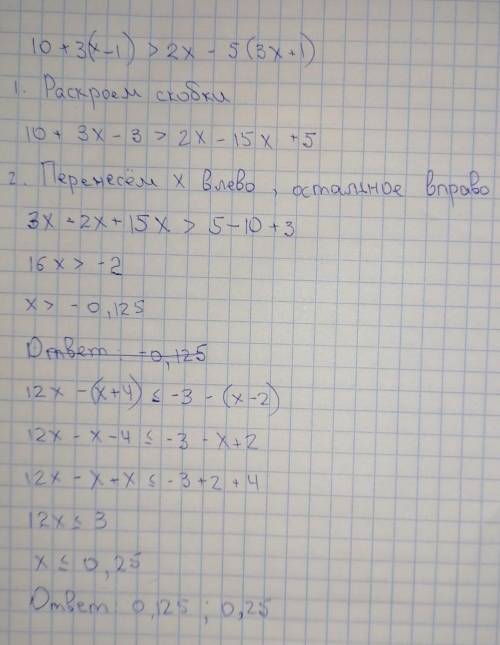 10 + 3(x-1) > 2x - 5(3x+1)
1. Раскроем скобки
10 + 3x - 3 > 2x - 15x + 5
2. Перенесём x влево, остальное вправо
3x - 2x + 15x > 5 - 10 + 3
16x > -2
x > -0,125
Ответ: -0,125
12x - (x+4) ≤ -3 - (x-2)
12x - x - 4 ≤ -3 - x + 2
12x - x + x ≤ -3 + 2 + 4
12x ≤ 3
x ≤ 0,25
Ответ: 0,125 ; 0,25